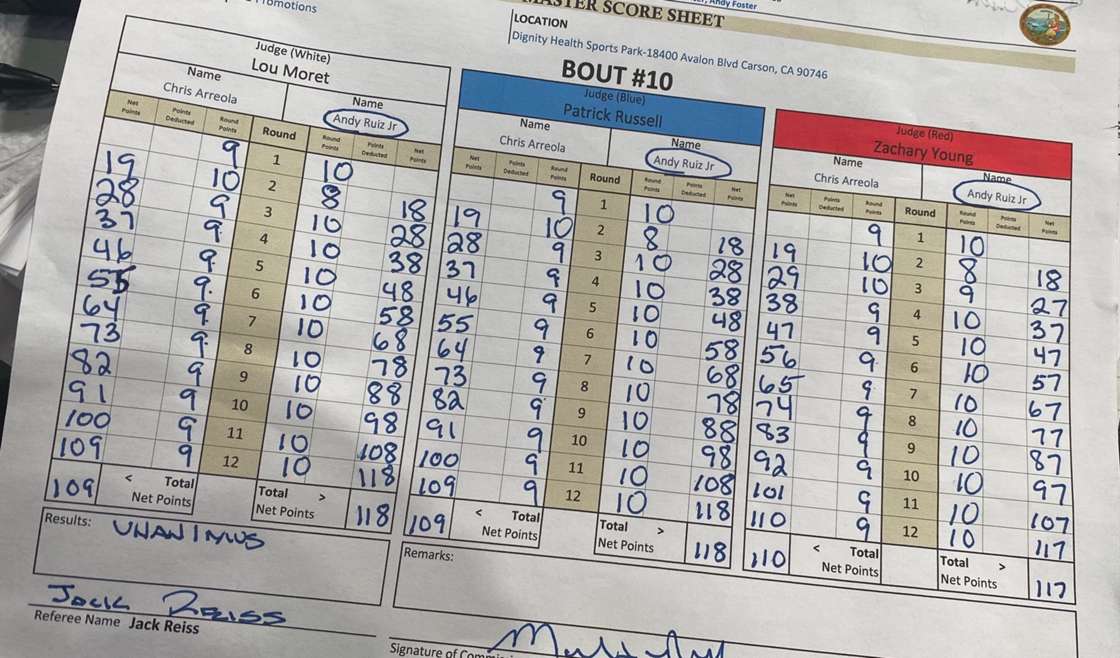 Promotions
er, Andy Foster
MASTER SCORE SHEET
LOCATION
Dignity Health Sports Park-18400 Avalon Blvd Carson, CA 90746
BOUT #10
Judge (White)
Lou Moret
Name Name
Chris Arreola Andy Ruiz Jr
Net Points Points Deducted Round Points Round Round Points Points Deducted Net Points
9 1 10
19 10 2 8 18
28 9 3 10 28
37 9 4 10 38
46 9 5 10 48
55 9 6 10 58
64 9 7 10 68
73 9 8 10 78
82 9 9 10 88
91 9 10 10 98
100 9 11 10 108
109 9 12 10 118
109 < Total Net Points Total > Net Points 118
Judge (Blue)
Patrick Russell
Name Name
Chris Arreola Andy Ruiz Jr
Net Points Points Deducted Round Points Round Round Points Points Deducted Net Points
9 1 10
19 10 2 8 18
28 9 3 10 28
37 9 4 10 38
46 9 5 10 48
55 9 6 10 58
64 9 7 10 68
73 9 8 10 78
82 9 9 10 88
91 9 10 10 98
100 9 11 10 108
109 9 12 10 118
109 < Total Net Points Total > Net Points 118
Judge (Red)
Zachary Young
Name Name
Chris Arreola Andy Ruiz Jr
Net Points Points Deducted Round Points Round Round Points Points Deducted Net Points
9 1 10
19 10 2 8 18
29 10 3 9 27
38 9 4 10 37
47 9 5 10 47
56 9 6 10 57
65 9 7 10 67
74 9 8 10 77
83 9 9 10 87
92 9 10 10 97
101 9 11 10 107
110 9 12 10 117
110 < Total Net Points Total > Net Points 117
Results: UNANIMUS
Remarks:
Jack Reiss
Referee Name Jack Reiss
Signature of Commi